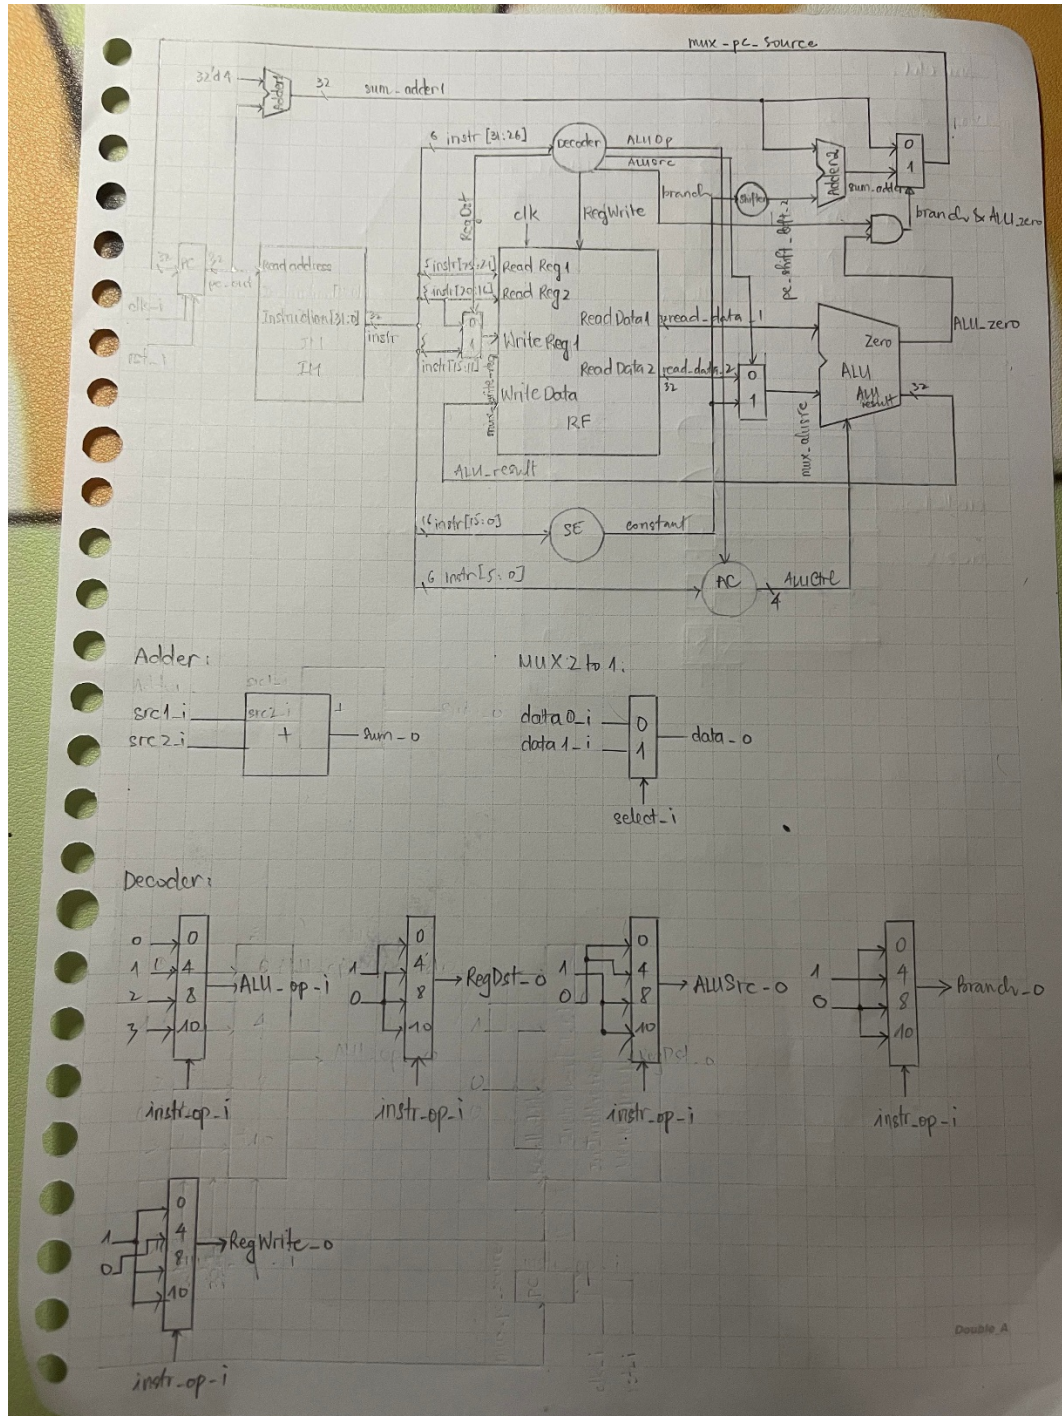 mux-pc-source
32'd4
Adder1
32
sum_adder1
6 instr[31:26]
Decoder
ALUOp
ALUsrc
RegDst
clk
RegWrite
branch
Shifter
Adder2
sum_adder
0
1
branch & ALU_zero
pc_shift_left_2
32
PC
32
pc_out
clk_i
rst_i
Read address
Instruction[31:0]
IM
32
instr
5 instr[25:21]
Read Reg1
instr[20:16]
Read Reg2
0
1
Write Reg1
instr[15:11]
mux_write_reg
Write Data
RF
Read Data1
read_data_1
Read Data2
read_data_2
32
0
1
mux_alusrc
Zero
ALU
ALU result
32
ALU_zero
ALU_result
16 instr[15:0]
SE
constant
6 instr[5:0]
AC
ALUCtrl
4
Adder:
src1_i
src2_i
src2_i
+
sum_o
MUX 2 to 1:
data0_i
data1_i
0
1
data_o
select_i
Decoder:
0
1
2
3
0
4
8
10
ALU_op_i
instr_op_i
1
0
0
4
8
10
RegDst_o
instr_op_i
1
0
0
4
8
10
ALUSrc_o
instr_op_i
1
0
0
4
8
10
Branch_o
instr_op_i
1
0
0
4
8
10
RegWrite_o
instr_op_i
PC
Double A